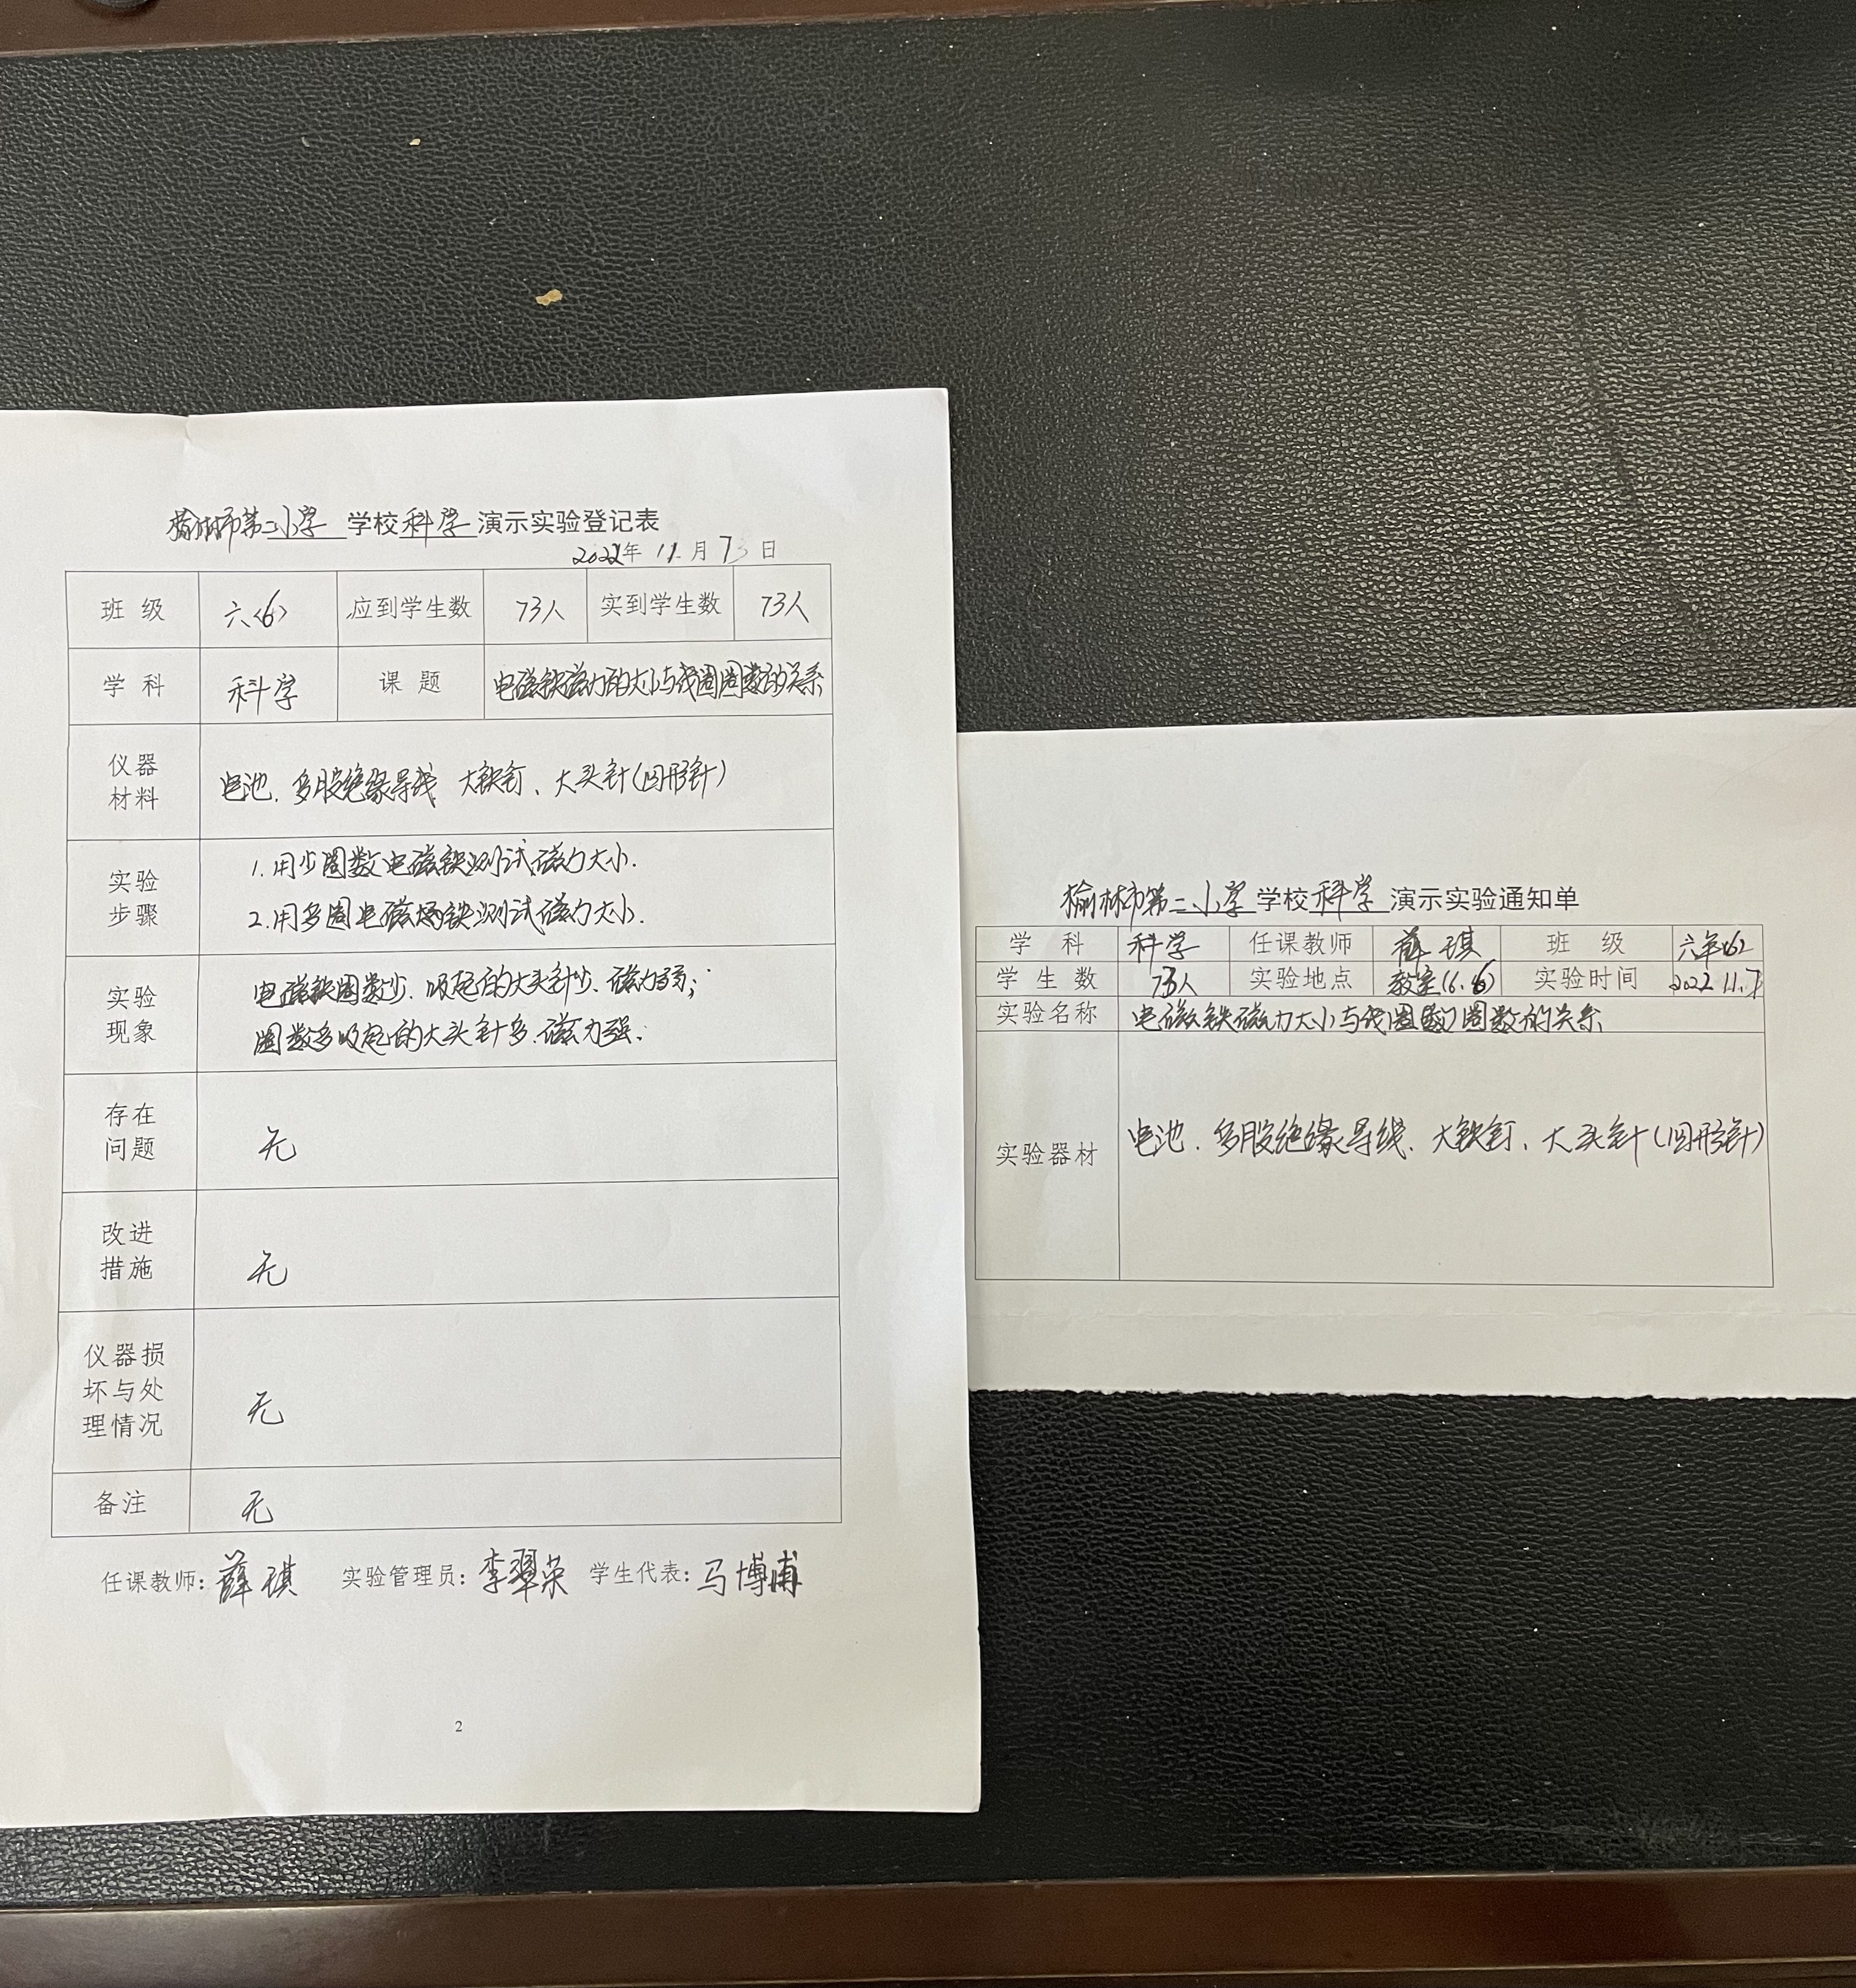 榆林市第二小学 学校 科学 演示实验登记表
2022年 11 月 7 日
班 级 六<6> 应到学生数 73人 实到学生数 73人
学 科 科学 课 题 电磁铁磁力的大小与线圈圈数的关系
仪器
材料
电池、多股绝缘导线 大铁钉、大头针(回形针)
实验
步骤
1.用少圈数电磁铁测试磁力大小.
2.用多圈电磁铁测试磁力大小.
实验
现象
电磁铁圈数少、吸起的大头针少、磁力弱;
圈数多吸起的大头针多、磁力强.
存在
问题
无
改进
措施
无
仪器损
坏与处
理情况
无
备注 无
任课教师: 薛琪 实验管理员: 李翠荣 学生代表: 马博甫
2
榆林市第二小学 学校 科学 演示实验通知单
学 科 科学 任课教师 薛琪 班 级 六年(6)
学 生 数 73人 实验地点 教室(6.6) 实验时间 2022.11.7
实验名称 电磁铁磁力大小与线圈圈数的关系
实验器材 电池、多股绝缘导线、大铁钉、大头针(回形针)